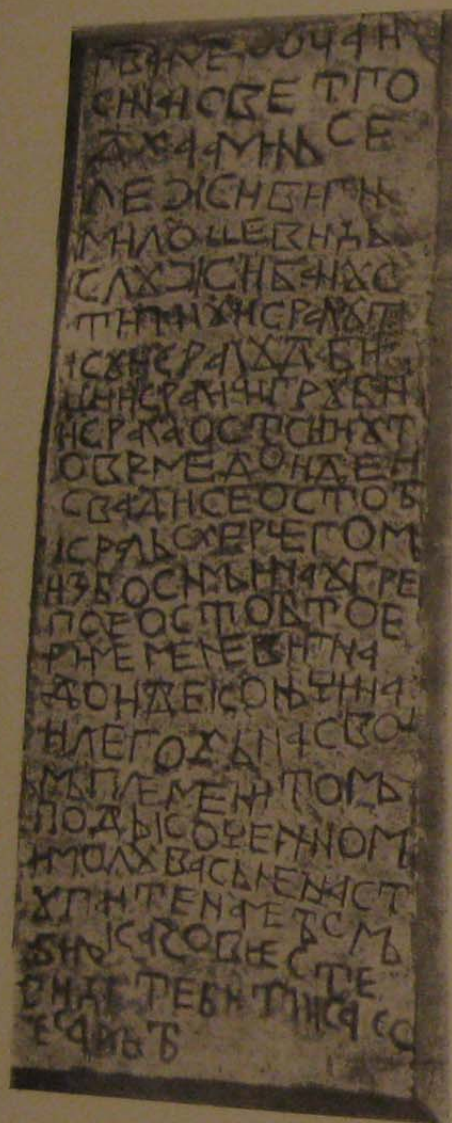 ВА ИМЕ ОЧА И
СИНА И СВЕТГО
ДХА АМИНЬ СЕ
ЛЕЖИ ВИГНЬ
МИЛОШЕВИЋЬ
СЛУЖИ БАНУ С
ТИПАНУ И КРАЛУ Т
КУ И КРАЛУ ДАБИ
И КРАЛИЧИ ГРУБИ
И КРАЛА ОСТОЮ И У Т
О ВРМЕ ДОИДЕ И
СВАДИ СЕ ОСТОѢ
КРАЛЬ СХЕРЧЕГОМ
И З БОСНМЬ И НА УГРЕ
ПОЕ ОСТОѢ ТО
РИМЕ МЕНЕ ВИГНА
ДОНДЕ КОНЬЧИНА
И ЛЕГОХЬ НА СВО
МЬ ПЛЕМЕНИТОМЬ
ПОДЬ КОЧЕРИНОМ
И МОЛУ ВАСЬ НЕ НАСТ
УПАИТЕ НА МЕ Ѣ СМЬ
БИЛЬ КАКО ВИ ЕСТЕ
ВИ ЋЕТЕ БИТИ КАКО
ЕСАМЬ Ѣ